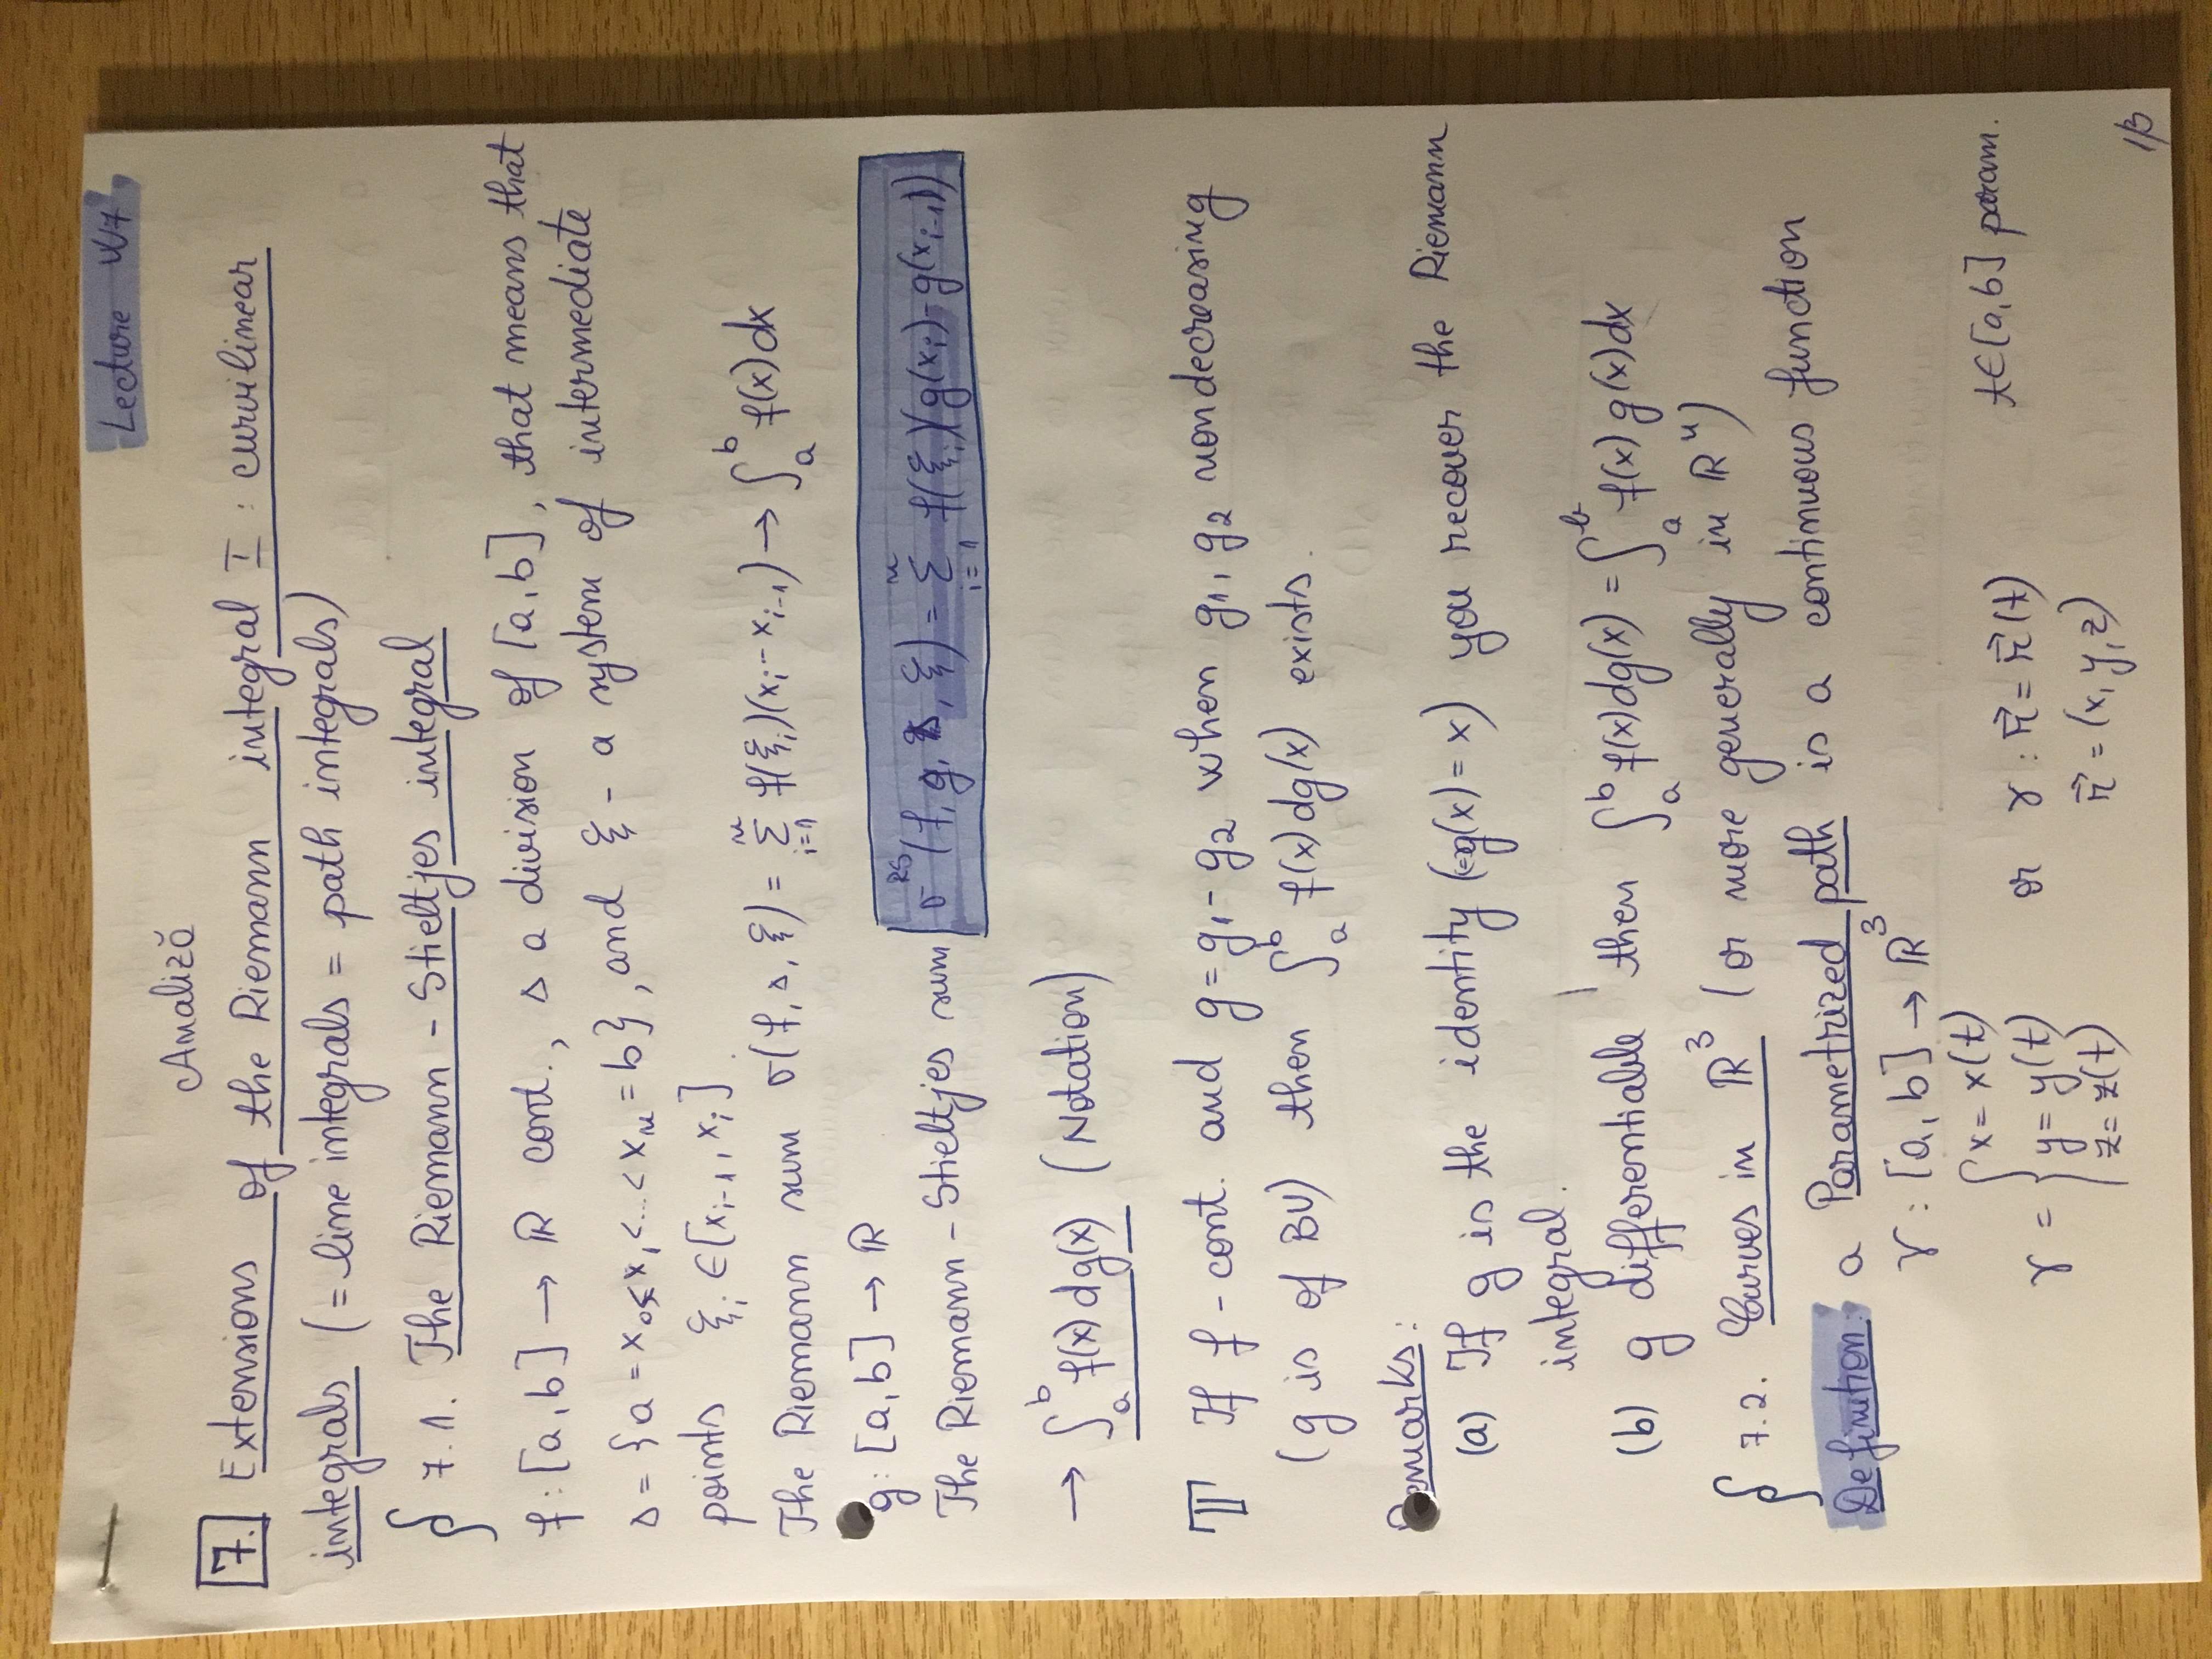 Lecture W7
Analiză
7. Extensions of the Riemann integral I : curvilinear
integrals (= line integrals = path integrals)
§ 7.1. The Riemann - Stieltjes integral
f : [a, b] → ℝ cont., Δ a division of [a, b], that means that
Δ = {a = x₀ < x₁ < ... < xₙ = b}, and ξ - a system of intermediate
points ξᵢ ∈ [xᵢ₋₁, xᵢ].
The Riemann sum σ(f, Δ, ξ) = Σᵢ₌₁ⁿ f(ξᵢ)(xᵢ - xᵢ₋₁) → ∫ₐᵇ f(x) dx
g : [a, b] → ℝ
The Riemann - Stieltjes sum σ^RS (f, g, Δ, ξ) = Σᵢ₌₁ⁿ f(ξᵢ)(g(xᵢ) - g(xᵢ₋₁))
→ ∫ₐᵇ f(x) dg(x) (Notation)
T If f - cont. and g = g₁ - g₂ when g₁, g₂ nondecreasing
(g is of BV) then ∫ₐᵇ f(x) dg(x) exists.
Remarks :
(a) If g is the identity (=g(x) = x) you recover the Riemann
integral.
(b) g differentiable then ∫ₐᵇ f(x) dg(x) = ∫ₐᵇ f(x) g(x) dx
§ 7.2. Curves in ℝ³ (or more generally in ℝⁿ)
Definition: a Parametrized path is a continuous function
γ : [a, b] → ℝ³
γ = { x = x(t)
y = y(t) or γ : r⃗ = r⃗(t) t ∈ [a, b] param.
z = z(t) r⃗ = (x, y, z)
1/3